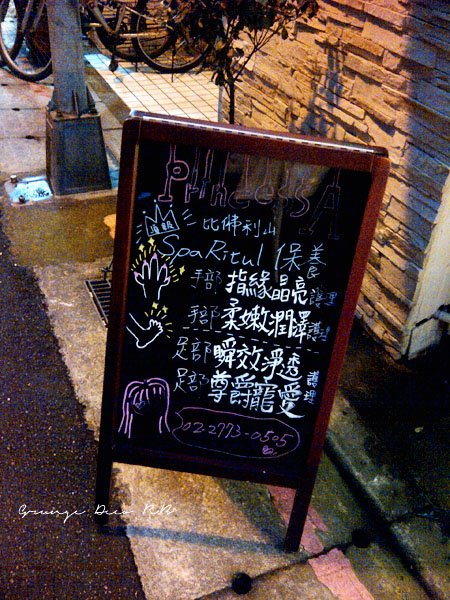 PrincessA
頂級 比佛利山
SpaRitul 保養
手部 指緣晶亮 護理
手部 柔嫩潤澤 護理
足部 瞬效淨透
足部 尊爵寵愛 護理
02-2773-0505